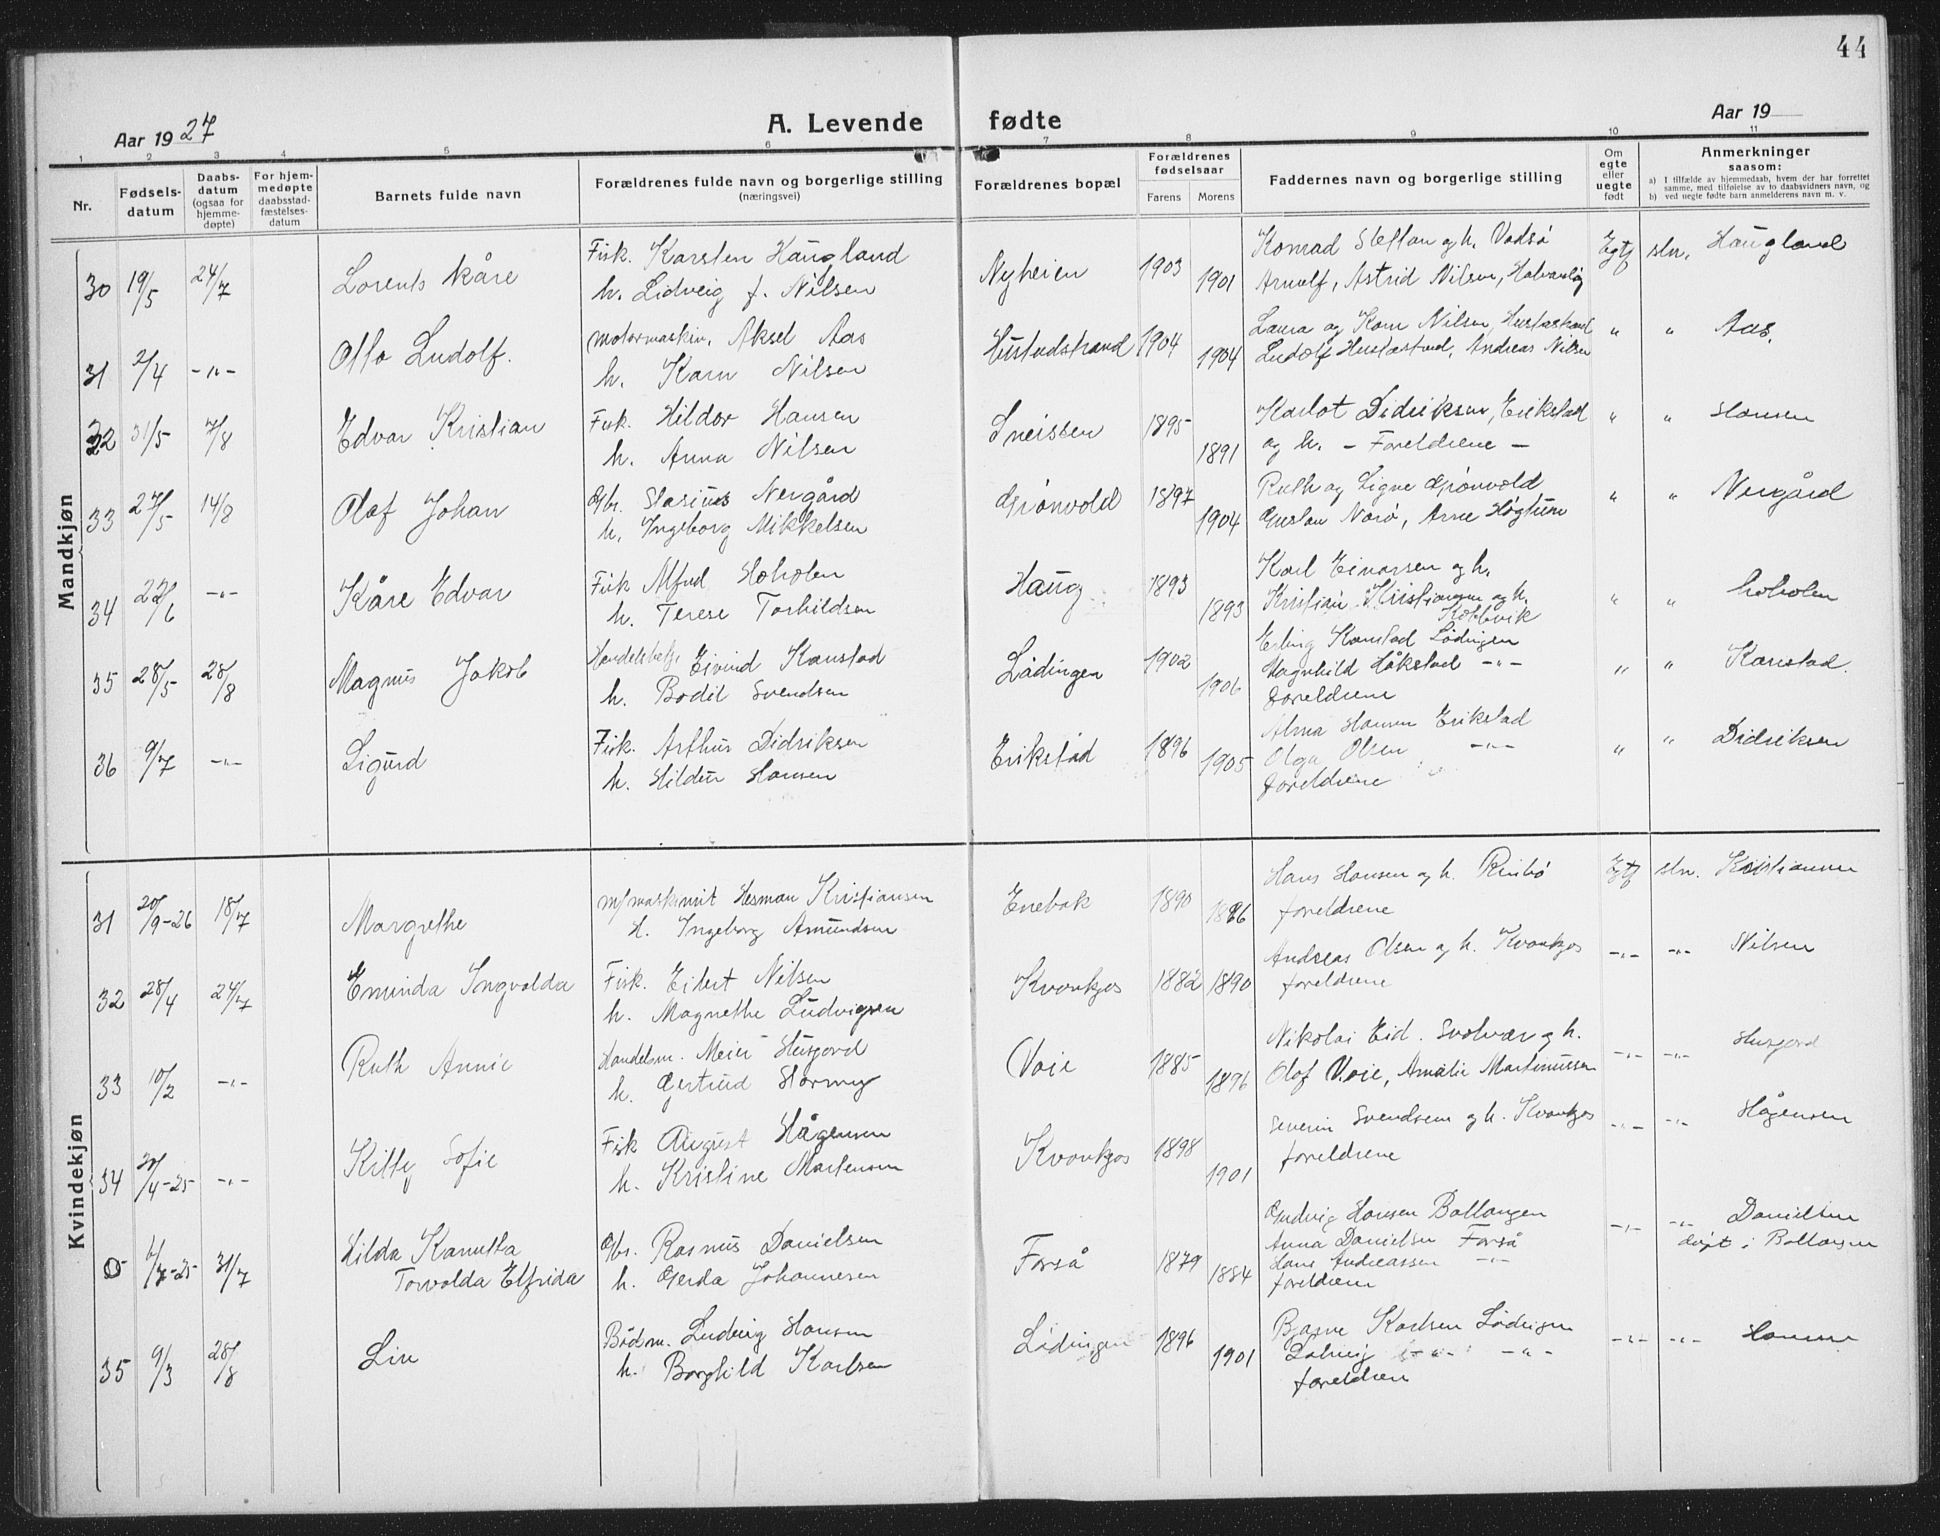 44
Aar 1927
A. Levende fødte
Aar 19
1 2 3 4 5 6 7 8 9 10 11
Nr.
Fødsels-
datum
Daabs-
datum
(ogsaa for
hjemme-
døpte)
For hjem-
medøpte
daabsstad-
fæstelses-
datum
Barnets fulde navn
Forældrenes fulde navn og borgerlige stilling
(næringsvei)
Forældrenes bopæl
Forældrenes
fødselsaar
Farens Morens
Faddernes navn og borgerlige stilling
Om
egte
eller
uegte
født
Anmerkninger
saasom:
a) I tilfælde av hjemmedaab, hvem der har forrettet
samme, med tilføielse av to daabsvidners navn, og
b) ved uegte fødte barn anmelderens navn m. v.
Mandkjøn
30 19/5 24/7 Lorents Kåre Fisk. Karsten Haugland Nyheien 1903 Konrad Steffan og h. Vadsø Egte stn. Haugland
h. Lidveig f. Nilsen 1901 Arnulf, Astrid Nilsen,
31 2/4 -"- Otto Ludolf. Motormaskin. Aksel Aas Hustadstrand 1904 Laura og Karn Nilsen, Hustadstrand " " Aas.
h. Karn Nilsen 1904 Ludolf Hustadstrand, Andreas Nilsen
32 31/5 7/8 Edvar Kristian Fisk. Hildor Hansen Sneisen 1895 Harlot Didriksen, Erikstad " " Hansen
h. Anna Nilsen 1891 og h. - Foreldrene -
33 27/5 14/8 Olaf Johan Gbr. Hasius Nergård Grønvold 1897 Ruth og Signe Grønvold " " Nergård
h. Ingeborg Mikkelsen 1904 Gustav Norø, Arne Høgtun
34 22/6 -"- Kåre Edvar Fisk Alfred Hoholen Haug 1893 Karl Einarsen og h. " " hoholen
h. Terese Torhildsen 1893 Kristian Kristiansen og h.
Kobbvik
35 28/5 28/8 Magnus Jakob Handelsbetj. Eivind Kanstad Lødingen 1902 Erling Kanstad Lødingen " " Kanstad.
h. Bodil Svendsen 1906 Magnhild Håkstad -"-
foreldrene
36 9/7 -"- Sigurd Fisk. Arthur Didriksen Erikstad 1896 Alma Hansen Erikstad " " Didriksen
h. Hildur Hansen 1905 Olga Olsen -"-
foreldrene
Kvindekjøn
31 20/9-26 18/7 Margrethe m/maskinist Herman Kristiansen Enebak 1890 Hans Hansen og h. Rinbø Egte stn. Kristiansen
h. Ingeborg Amundsen 1896 foreldrene
32 28/4 24/7 Eminda Ingvalda Fisk. Eilert Nilsen Kvankjos 1882 1890 Andreas Olsen og h. Kvankjos -"- -"- Nilsen
h. Magnethe Ludvigsen foreldrene
33 10/2 -"- Ruth Annie Handelsm. Meier Husjord Voie 1885 Nikolai Eid. Svolvær og h. -"- -"- Husjord
h. Gertrud Hormy 1896 Olof Voie, Amalie Martinussen
34 20/4-25 -"- Kitty Sofie Fisk August Hågensen Kvankjos 1898 Severin Svendsen og h. Kvankjos -"- -"- Hågensen
h. Kristine Martensen 1901 foreldrene
0 6/7-25 31/7 Hilda Kanutta Gbr. Rasmus Danielsen Forså 1879 Gudvig Hansen Ballangen -"- -"- Danielsen
Torvalda Elfrida h. Gerda Johannesen 1884 Anna Danielsen Forså døpt i Ballangen
Hans Andreassen -"-
foreldrene
35 9/3 28/8 Liv Bådsm. Ludvig Hansen Lødingen 1896 Bjarne Karlsen Lødingen -"- -"- Hansen
h. Borghild Karlsen 1901 Solveig -"- -"-
foreldren